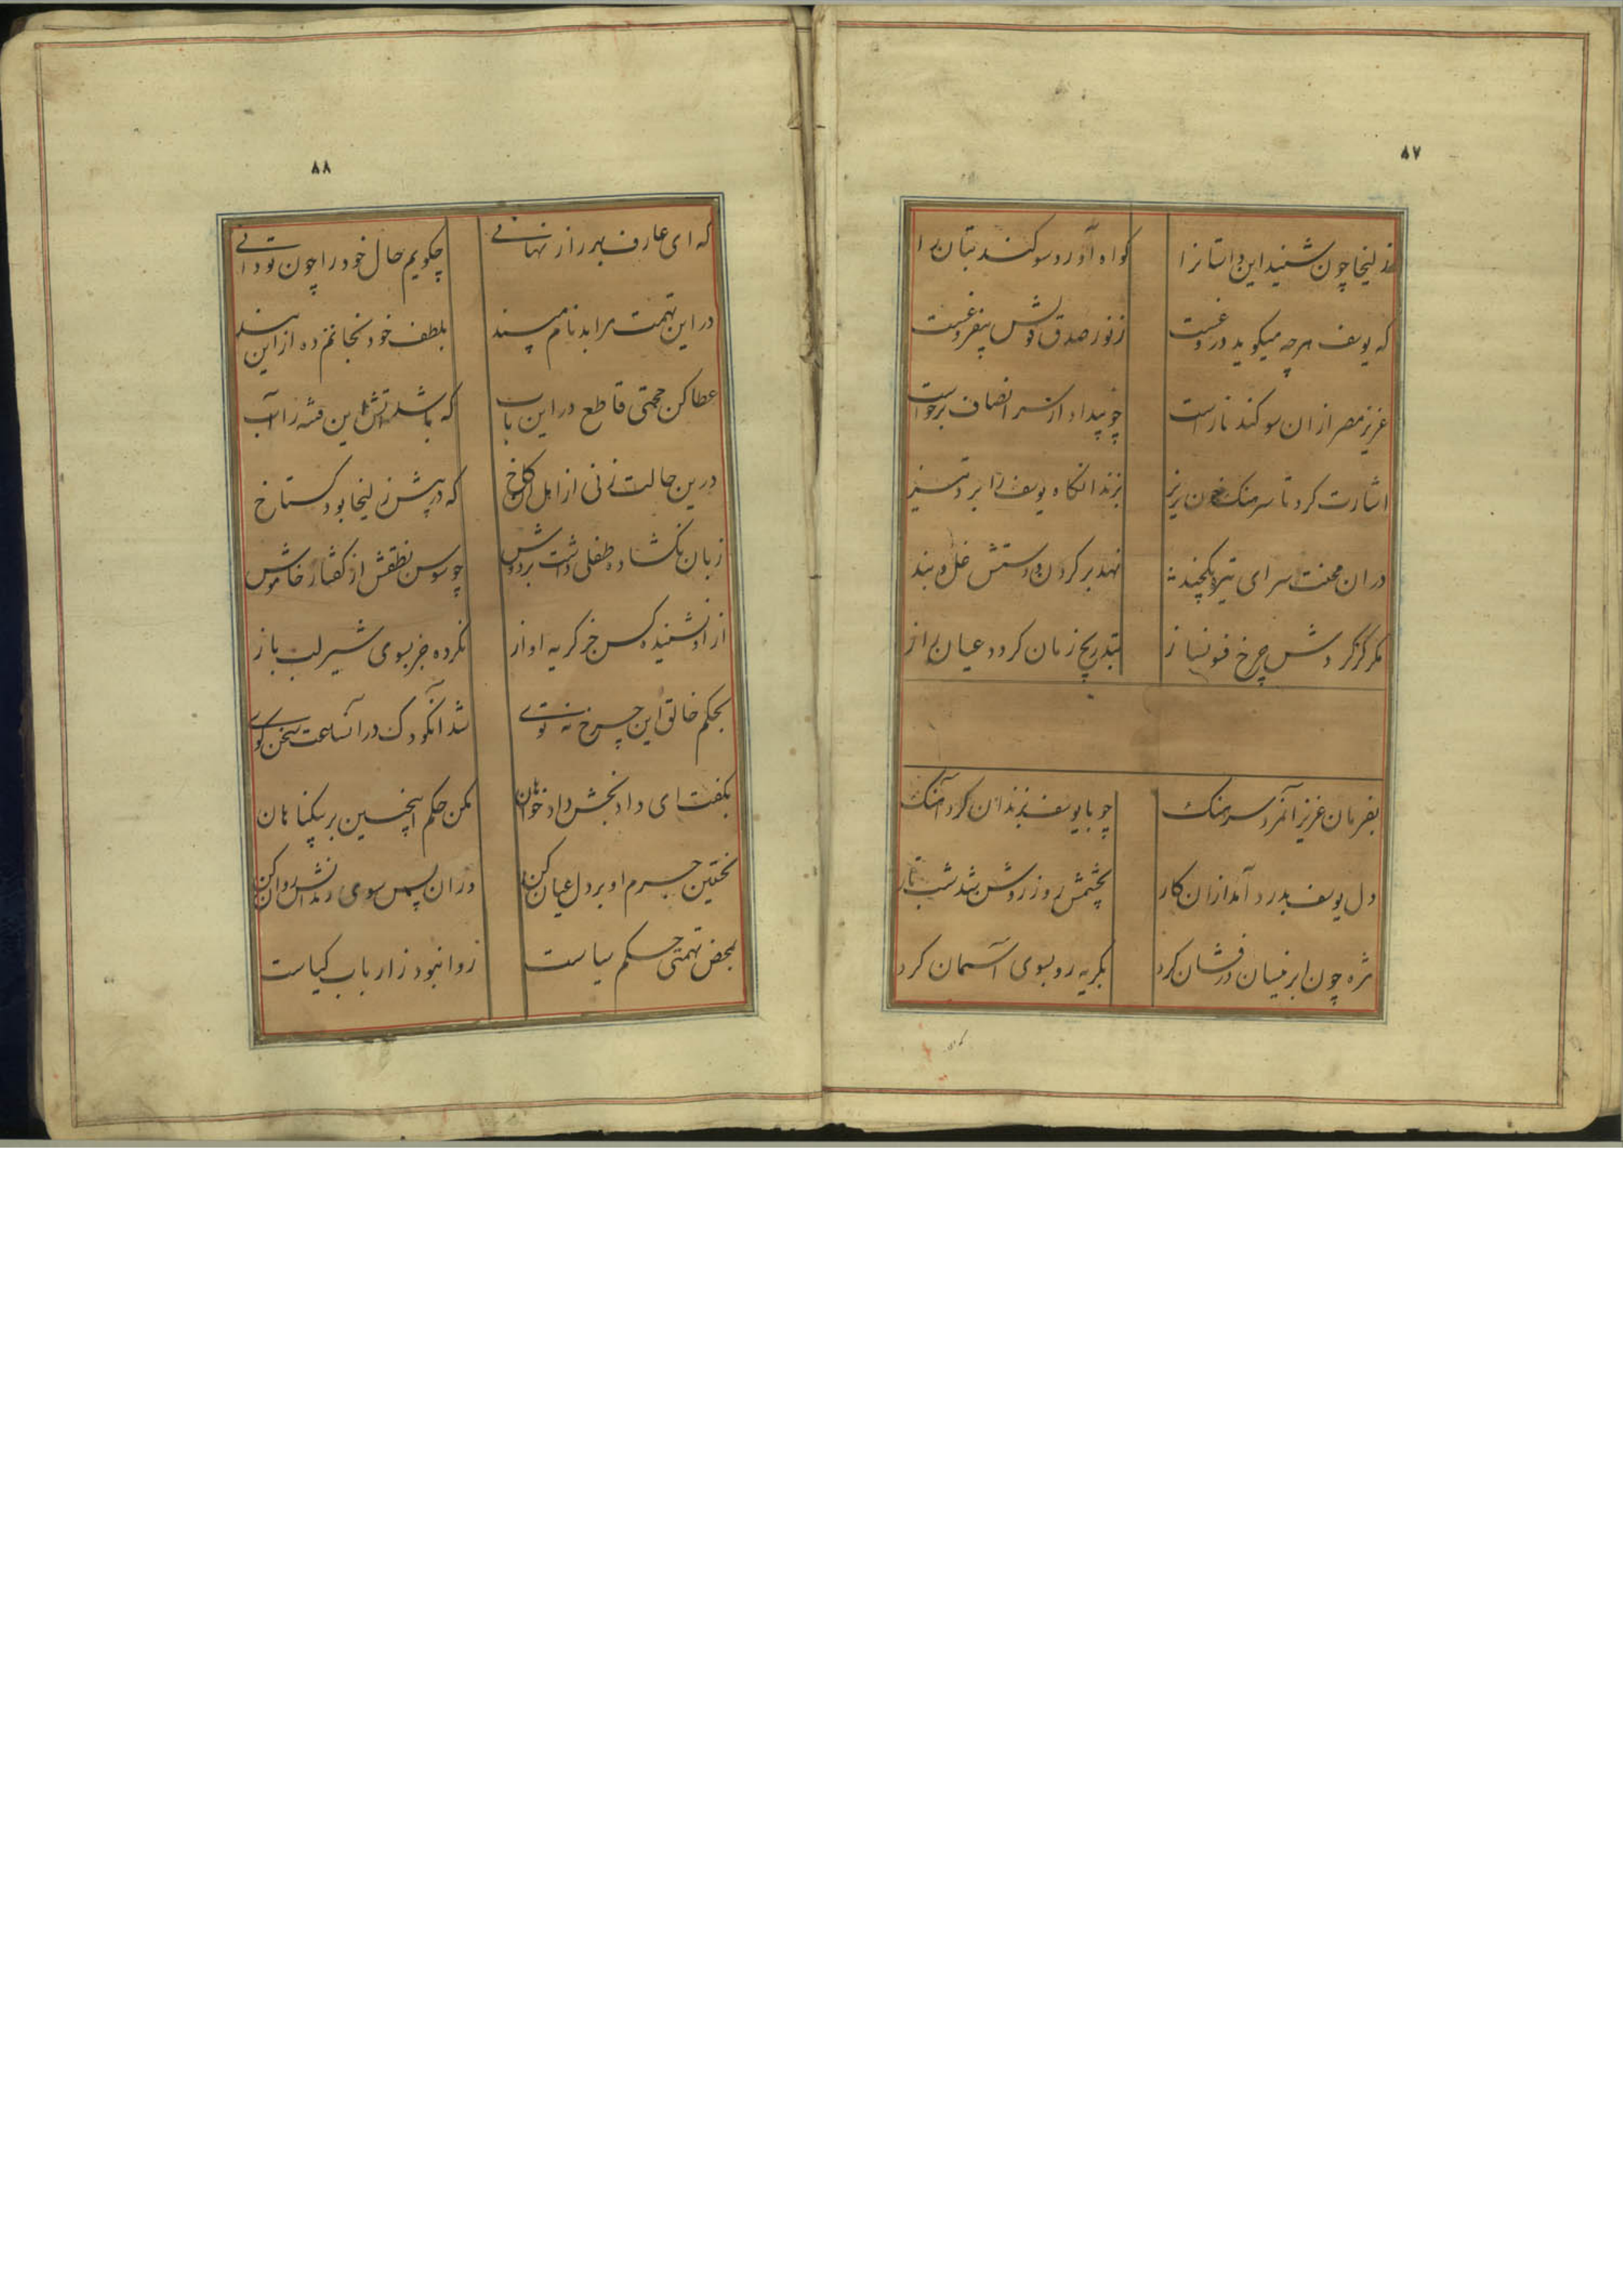 ۸۷
زلیخا چون شنید این داستانرا کواه آورد سوکند بتان را
که یوسف هرچه میکوید دروغست ز نور صدق قولش بیفروغست
عزیز مصر ازان سوکند ناراست چو بیداد از سر انصاف برخواست
اشارت کرد تا سرهنک خون ریز بزندانکاه یوسف را برد تیز
دران محنت سرای تیره یکچند نهد بر کردن و دستش غل و بند
مکر کز کردش چرخ فونساز بتدریج زمان کردد عیان راز
بفرمان عزیز آنمرد سرهنک چو با یوسف بزندان کرد آهنک
دل یوسف بدرد آمد ازان کار بچشمش روز روشن شد شب تار
مژه چون ابر نیسان درفشان کرد بکریه رو بسوی آسمان کرد
۸۸
که ای عارف بهر راز نهانی چکویم حال خود را چون تو دانی
در این تهمت مرا بدنام مپسند بلطف خود نجاتم ده از این بند
عطا کن حجتی قاطع در این باب که باشد آتش این فتنه را آب
درین حالت زنی از اهل آن کاخ که در پیش زلیخا بود کستاخ
زبان نکشاده طفلی داشت بر دوش چو سوسن نطقش از کفتار خاموش
از او نشنیده کس جز کریه اواز نکرده جز بسوی شیر لب باز
بحکم خالق این چرخ نه توی شد آنکودک در آنساعت سخن کوی
بکفت ای داد بخش داد خواهان مکن حکم اینچنین بر بیکناهان
نخستین جرم او بر دل عیان کن وزان پس سوی زندانش روان کن
بمحض تهمتی حکم سیاست روا نبود ز ارباب کیاست